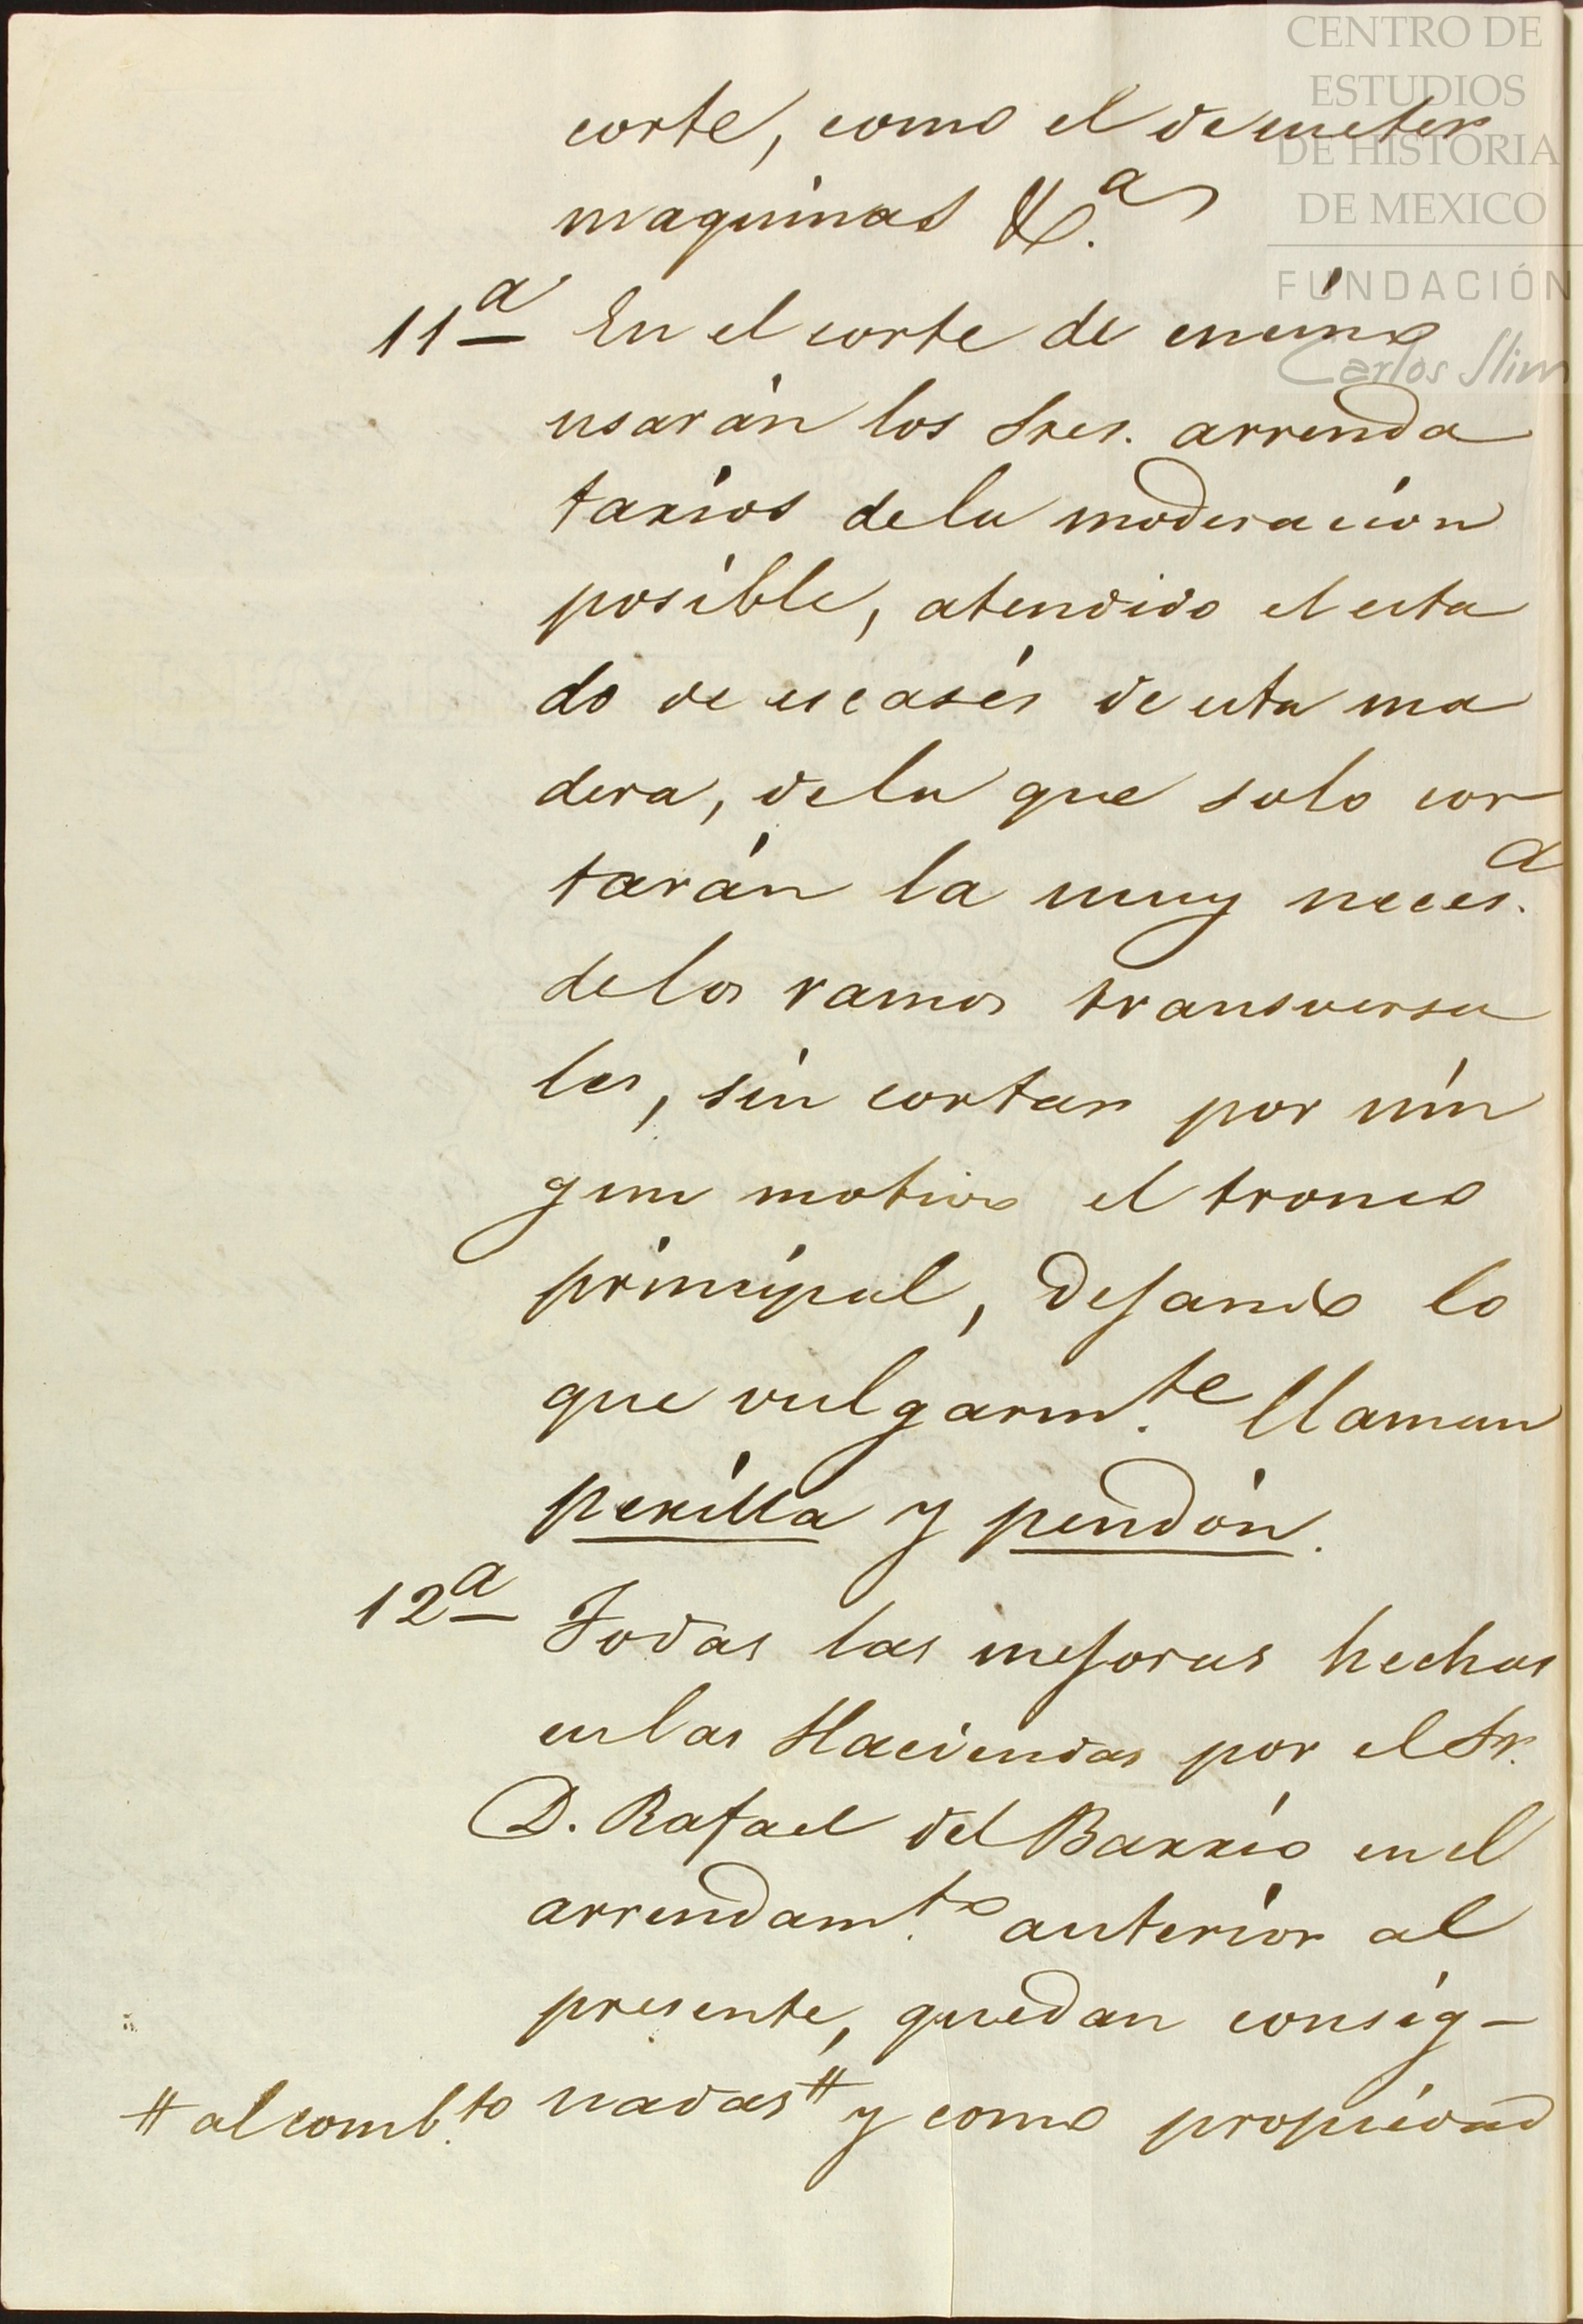 CENTRO DE
ESTUDIOS
DE HISTORIA
DE MEXICO
FUNDACIÓN
Carlos Slim
corte, como el de meter
maquinas &.ª
11ª En el corte de encino
usarán los Sres. arrenda
tarios dela moderacion
posible, atendido el esta
do de escasés de esta ma
dera, dela que solo cor
tarán la muy neces.ª
delos ramos transversa
les, sin cortar por nin
gun motivo el tronco
principal, dejando lo
que vulgarm.te llaman
perilla y pendón.
12ª Todas las mejoras hechas
enlas Haciendas por el Sr.
D. Rafael del Barrio en el
arrendam.to anterior al
presente, quedan consig-
nadas # y como propiedad
# al comb.to